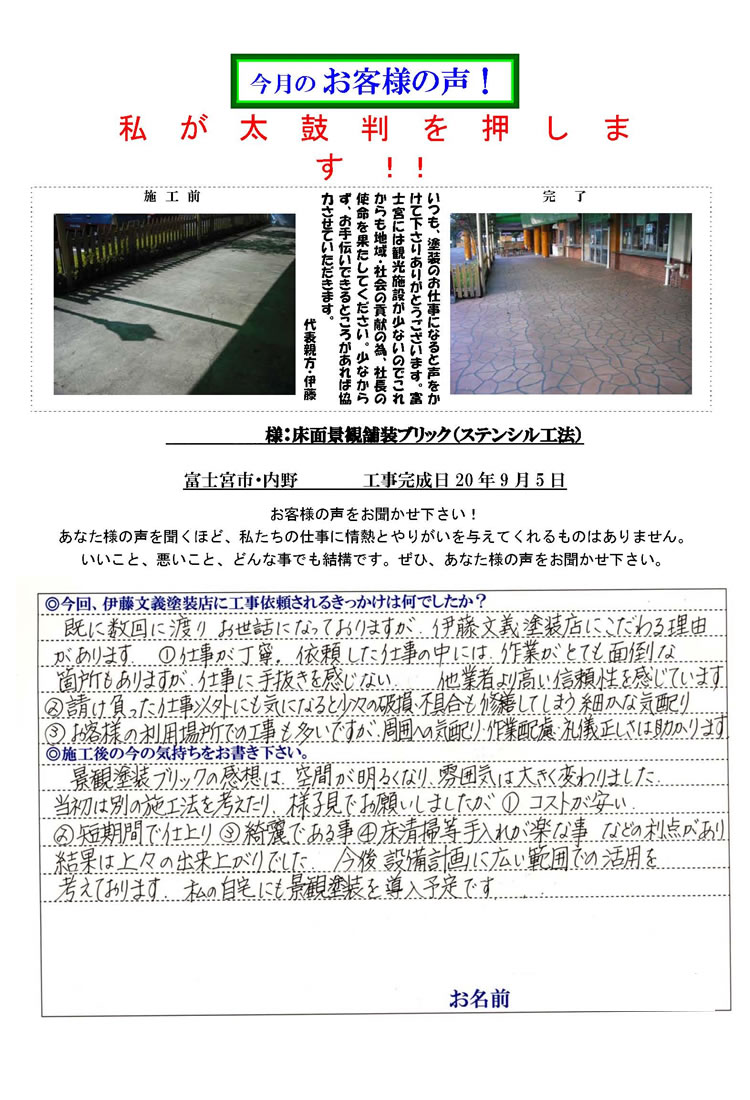 今月の お客様の声！
私が太鼓判を押しま
す!!
施工前
いつも、塗装のお仕事になると声をか
けて下さりありがとうございます。富
士宮には観光施設が少ないのでこれ
からも地域・社会の貢献の為、社長の
使命を果たしてください。少なから
ず、お手伝いできるところがあれば協
力させていただきます。
代表親方・伊藤
完了
様：床面景観舗装ブリック（ステンシル工法）
富士宮市・内野 工事完成日20年9月5日
お客様の声をお聞かせ下さい！
あなた様の声を聞くほど、私たちの仕事に情熱とやりがいを与えてくれるものはありません。
いいこと、悪いこと、どんな事でも結構です。ぜひ、あなた様の声をお聞かせ下さい。
◎今回、伊藤文義塗装店に工事依頼されるきっかけは何でしたか？
既に数回に渡りお世話になっておりますが、伊藤文義塗装店にこだわる理由
があります。①仕事が丁寧。依頼した仕事の中には、作業がとても面倒な
箇所もありますが、仕事に手抜きを感じない。他業者より高い信頼性を感じています
②請け負った仕事以外にも気になると少々の破損・不具合も修繕してしまう細かな気配り
③お客様の利用場所での工事も多いですが、周囲への気配り・作業配慮・礼儀正しさは助かります
◎施工後の今の気持ちをお書き下さい。
景観塗装ブリックの感想は、空間が明るくなり、雰囲気は大きく変わりました。
当初は別の施工法を考えたり、様子見でお願いしましたが①コストが安い
②短期間で仕上り③綺麗である事④床清掃等手入れが楽な事 などの利点があり
結果は上々の出来上がりでした。今後設備計画に広い範囲での活用を
考えております。私の自宅にも景観塗装を導入予定です......
お名前